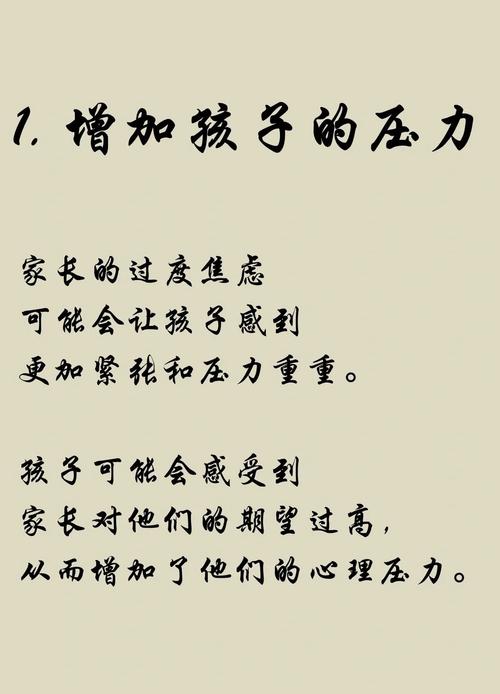 1. 增加孩子的压力
家长的过度焦虑
可能会让孩子感到
更加紧张和压力重重。
孩子可能会感受到
家长对他们的期望过高,
从而增加了他们的心理压力。